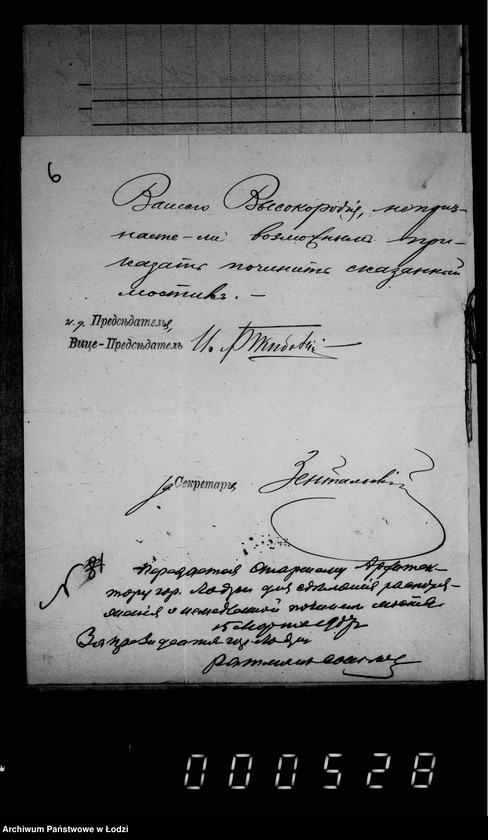 6
Вашего Высокородія, не приз-
наете-ли возможнымъ при-
казать починить сказанный
мостикъ. —
и. д. Предсѣдателя,
Вице-Предсѣдатель И.
Секретарь
N
Передается Старшему Архитек-
тору гор. Лодзи для сдѣланія распоря-
женія о немедленной починкѣ моста
Марта 1907
За Президента гор. Лодзи
000528
Archiwum Państwowe w Łodzi